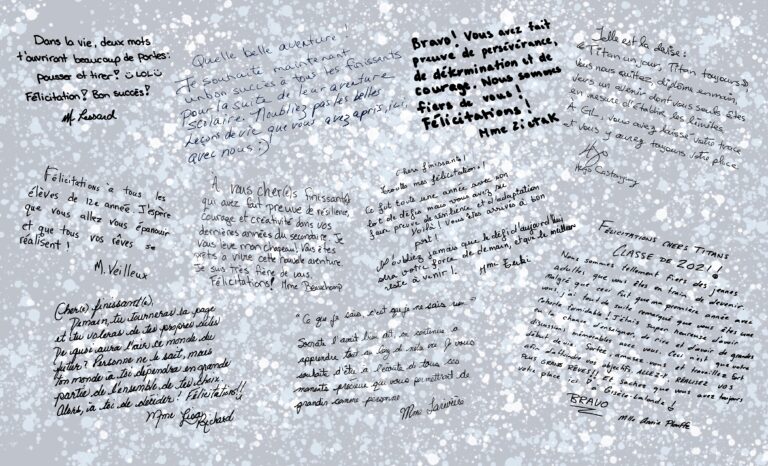 Dans la vie, deux mots
t'ouvriront beaucoup de portes:
pousser et tirer! LOL
Félicitation! Bon succès!
M. Lessard
Quelle belle aventure!
Je souhaite maintenant
un bon succès à tous les finissants
pour la suite de leur aventure
scolaire. N'oubliez pas les belles
leçons de vie que vous avez appris, ici,
avec nous :)
Bravo! Vous avez fait
preuve de persévérance,
de détermination et de
courage. Nous sommes
fiers de vous!
Félicitations!
Mme Ziutak
Telle est la devise:
« Titan un jour, Titan toujours »
Vous nous quittez, diplôme en main,
vers un avenir dont vous seuls êtes
en mesure d'établir les limites.
À GL, vous avez laissé votre trace
et vous y aurez toujours votre place
Hugo Castonguay
Félicitations à tous les
élèves de 12e année. J'espère
que vous allez vous épanouir
et que tous vos rêves se
réalisent!
M. Veilleux
À vous cher(e)s finissant(e)s
qui avez fait preuve de résilience,
courage et créativité dans vos
dernières années du secondaire. Je
vous lève mon chapeau! Vous êtes
prêts à vivre cette nouvelle aventure.
Je suis très fière de vous.
Félicitations! Mme Beauchamp
Chers finissants!
Toutes mes félicitations!
Ce fut toute une année avec son
lot de défis mais vous avez su
faire preuve de résilience et d'adaptation
Voilà! Vous êtes arrivés à bon
port!
N'oubliez jamais que le défi d'aujourd'hui
sera votre force de demain, et que le meilleur
reste à venir!
Mme
Cher(e) finissant(e),
Demain, tu tourneras la page
et tu voleras de tes propres ailes
De quoi aura l'air le monde du
futur? Personne ne le sait, mais
ton monde à toi dépendra en grande
partie de l'ensemble de tes choix.
Alors, à toi de décider! Félicitations!!
Mme Lisa
Richard
"Ce que je sais, c'est que je ne sais rien"
Socrate l'avait bien dit, on continue à
apprendre tout au long de notre vie. Je vous
souhaite d'être à l'écoute de tous ces
moments précieux qui vous permettront de
grandir comme personne.
Mme Larivière
Félicitations chers Titans
Classe de 2021!
Nous sommes tellement fiers des jeunes
adultes que vous êtes en train de devenir.
Malgré que ce fut que ma première année avec
vous, j'ai tout de suite remarqué que vous êtes une
cohorte formidable! J'étais super heureuse d'avoir
eu la chance d'enseigner, de rire et d'avoir de grandes
discussions avec vous. Ceci n'est que votre
début à vous. Soyez
afin d'atteindre vos objectifs. ALLEZ! RÉALISEZ VOS
PLUS GRANDS RÊVES!! Et sachez que vous avez toujours
votre place ici à Gisèle-Lalonde!
BRAVO
Mlle Annie Plouffe